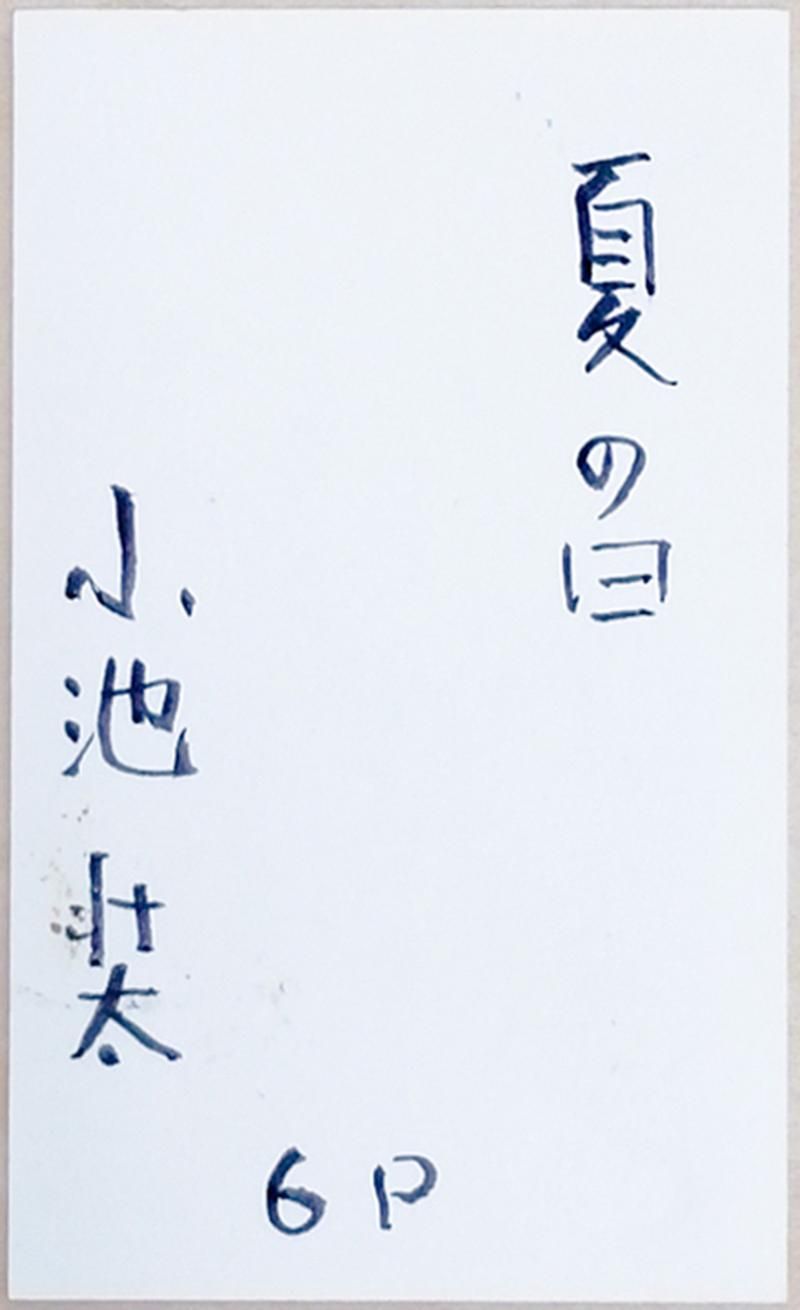 夏の日
小池壮太
6P